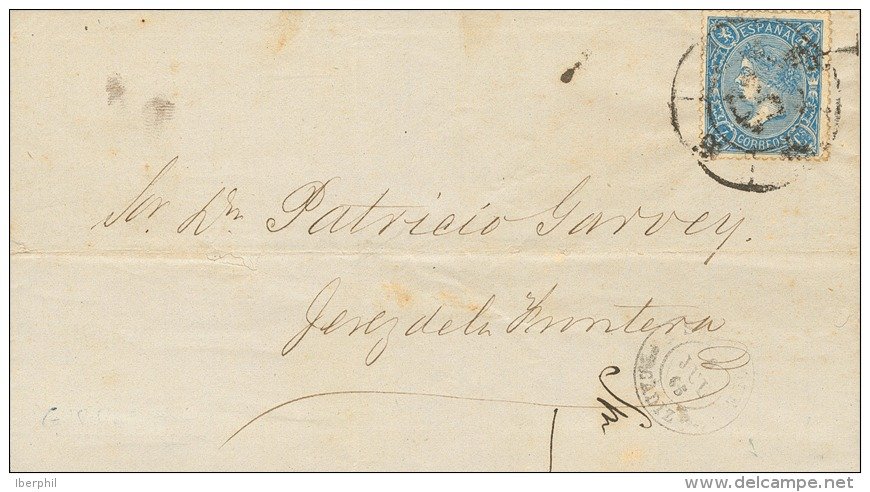 ESPAÑA
CORREOS
Sor. Dn. Patricio Garvey.
Jerez de la Frontera
JUL
65
CADIZ
Iberphil
www.delcampe.net